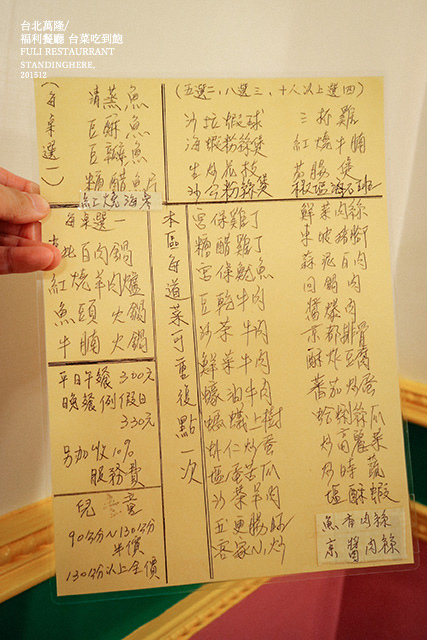 台北萬隆/
福利餐廳 台菜吃到飽
FULI RESTAURRANT
STANDINGHERE.
201512
(每桌選一)
清蒸魚
豆酥魚
豆瓣魚
糖醋魚片
紅燒海參
(五選二,八選三、十人以上選四)
沙拉蝦球
海蝦粉絲煲
生炒花枝
沙公粉絲煲
三杯雞
紅燒牛腩
芋腸煲
椒塩海石班
每桌選一
東北白肉鍋
紅燒羊肉爐
魚頭火鍋
牛腩火鍋
平日午餐 300元
晚餐例假日
330元
另加收10%
服務費
兒童
90公分~130公分
半價
130公分以上全價
本區每道菜可重複點一次
宮保雞丁
糖醋雞丁
宮保魷魚
豆乾牛肉
沙茶牛肉
鮮菜牛肉
蠔油牛肉
螞蟻上樹
蝦仁炒蛋
塩蛋苦瓜
沙茶羊肉
五更腸旺
客家小炒
鮮菜肉絲
東坡豬腳
蒜泥白肉
回鍋肉
醬爆肉
京都排骨
酥炸豆腐
蕃茄炒蛋
蛤蜊絲瓜
炒高麗菜
炒時蔬
塩酥蝦
魚香肉絲
京醬肉絲